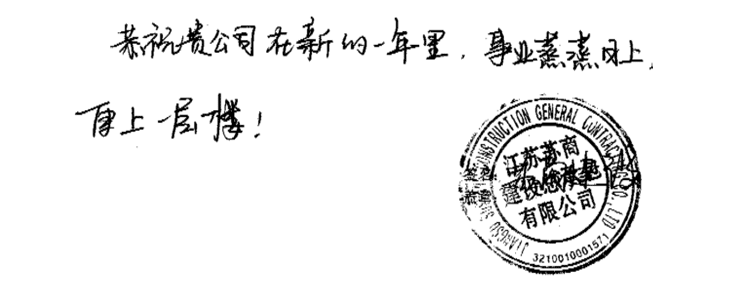 恭祝贵公司在新的一年里，事业蒸蒸日上，
更上一层楼！
CONSTRUCTION GENERAL CONTRACTING CO., LTD
江苏苏商
建设
有限公司
JIANGSU
3210010001571